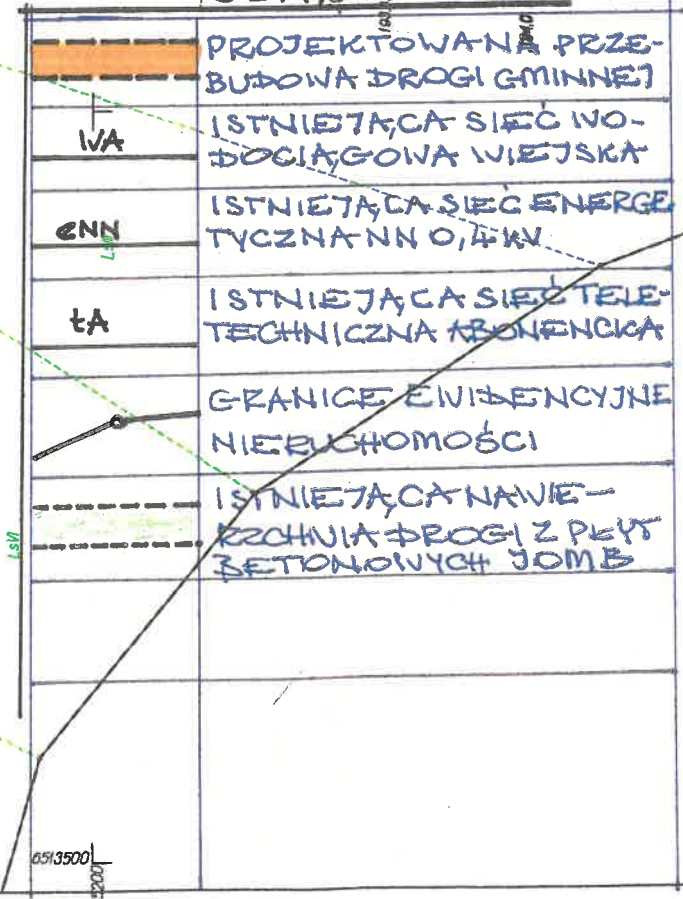 PROJEKTOWANA PRZE-
BUDOWA DROGI GMINNEJ
WA
ISTNIEJĄCA SIEĆ WO-
DOCIĄGOWA WIEJSKA
eNN
LsVI
ISTNIEJĄCA SIEĆ ENERGE
TYCZNA NN 0,4 KV
tA
ISTNIEJĄCA SIEĆ TELE-
TECHNICZNA ABONENCKA
GRANICE EWIDENCYJNE
NIERUCHOMOŚCI
LsVI
ISTNIEJĄCA NAWIE-
RZCHNIA DROGI Z PŁYT
BETONOWYCH JOMB
6513500